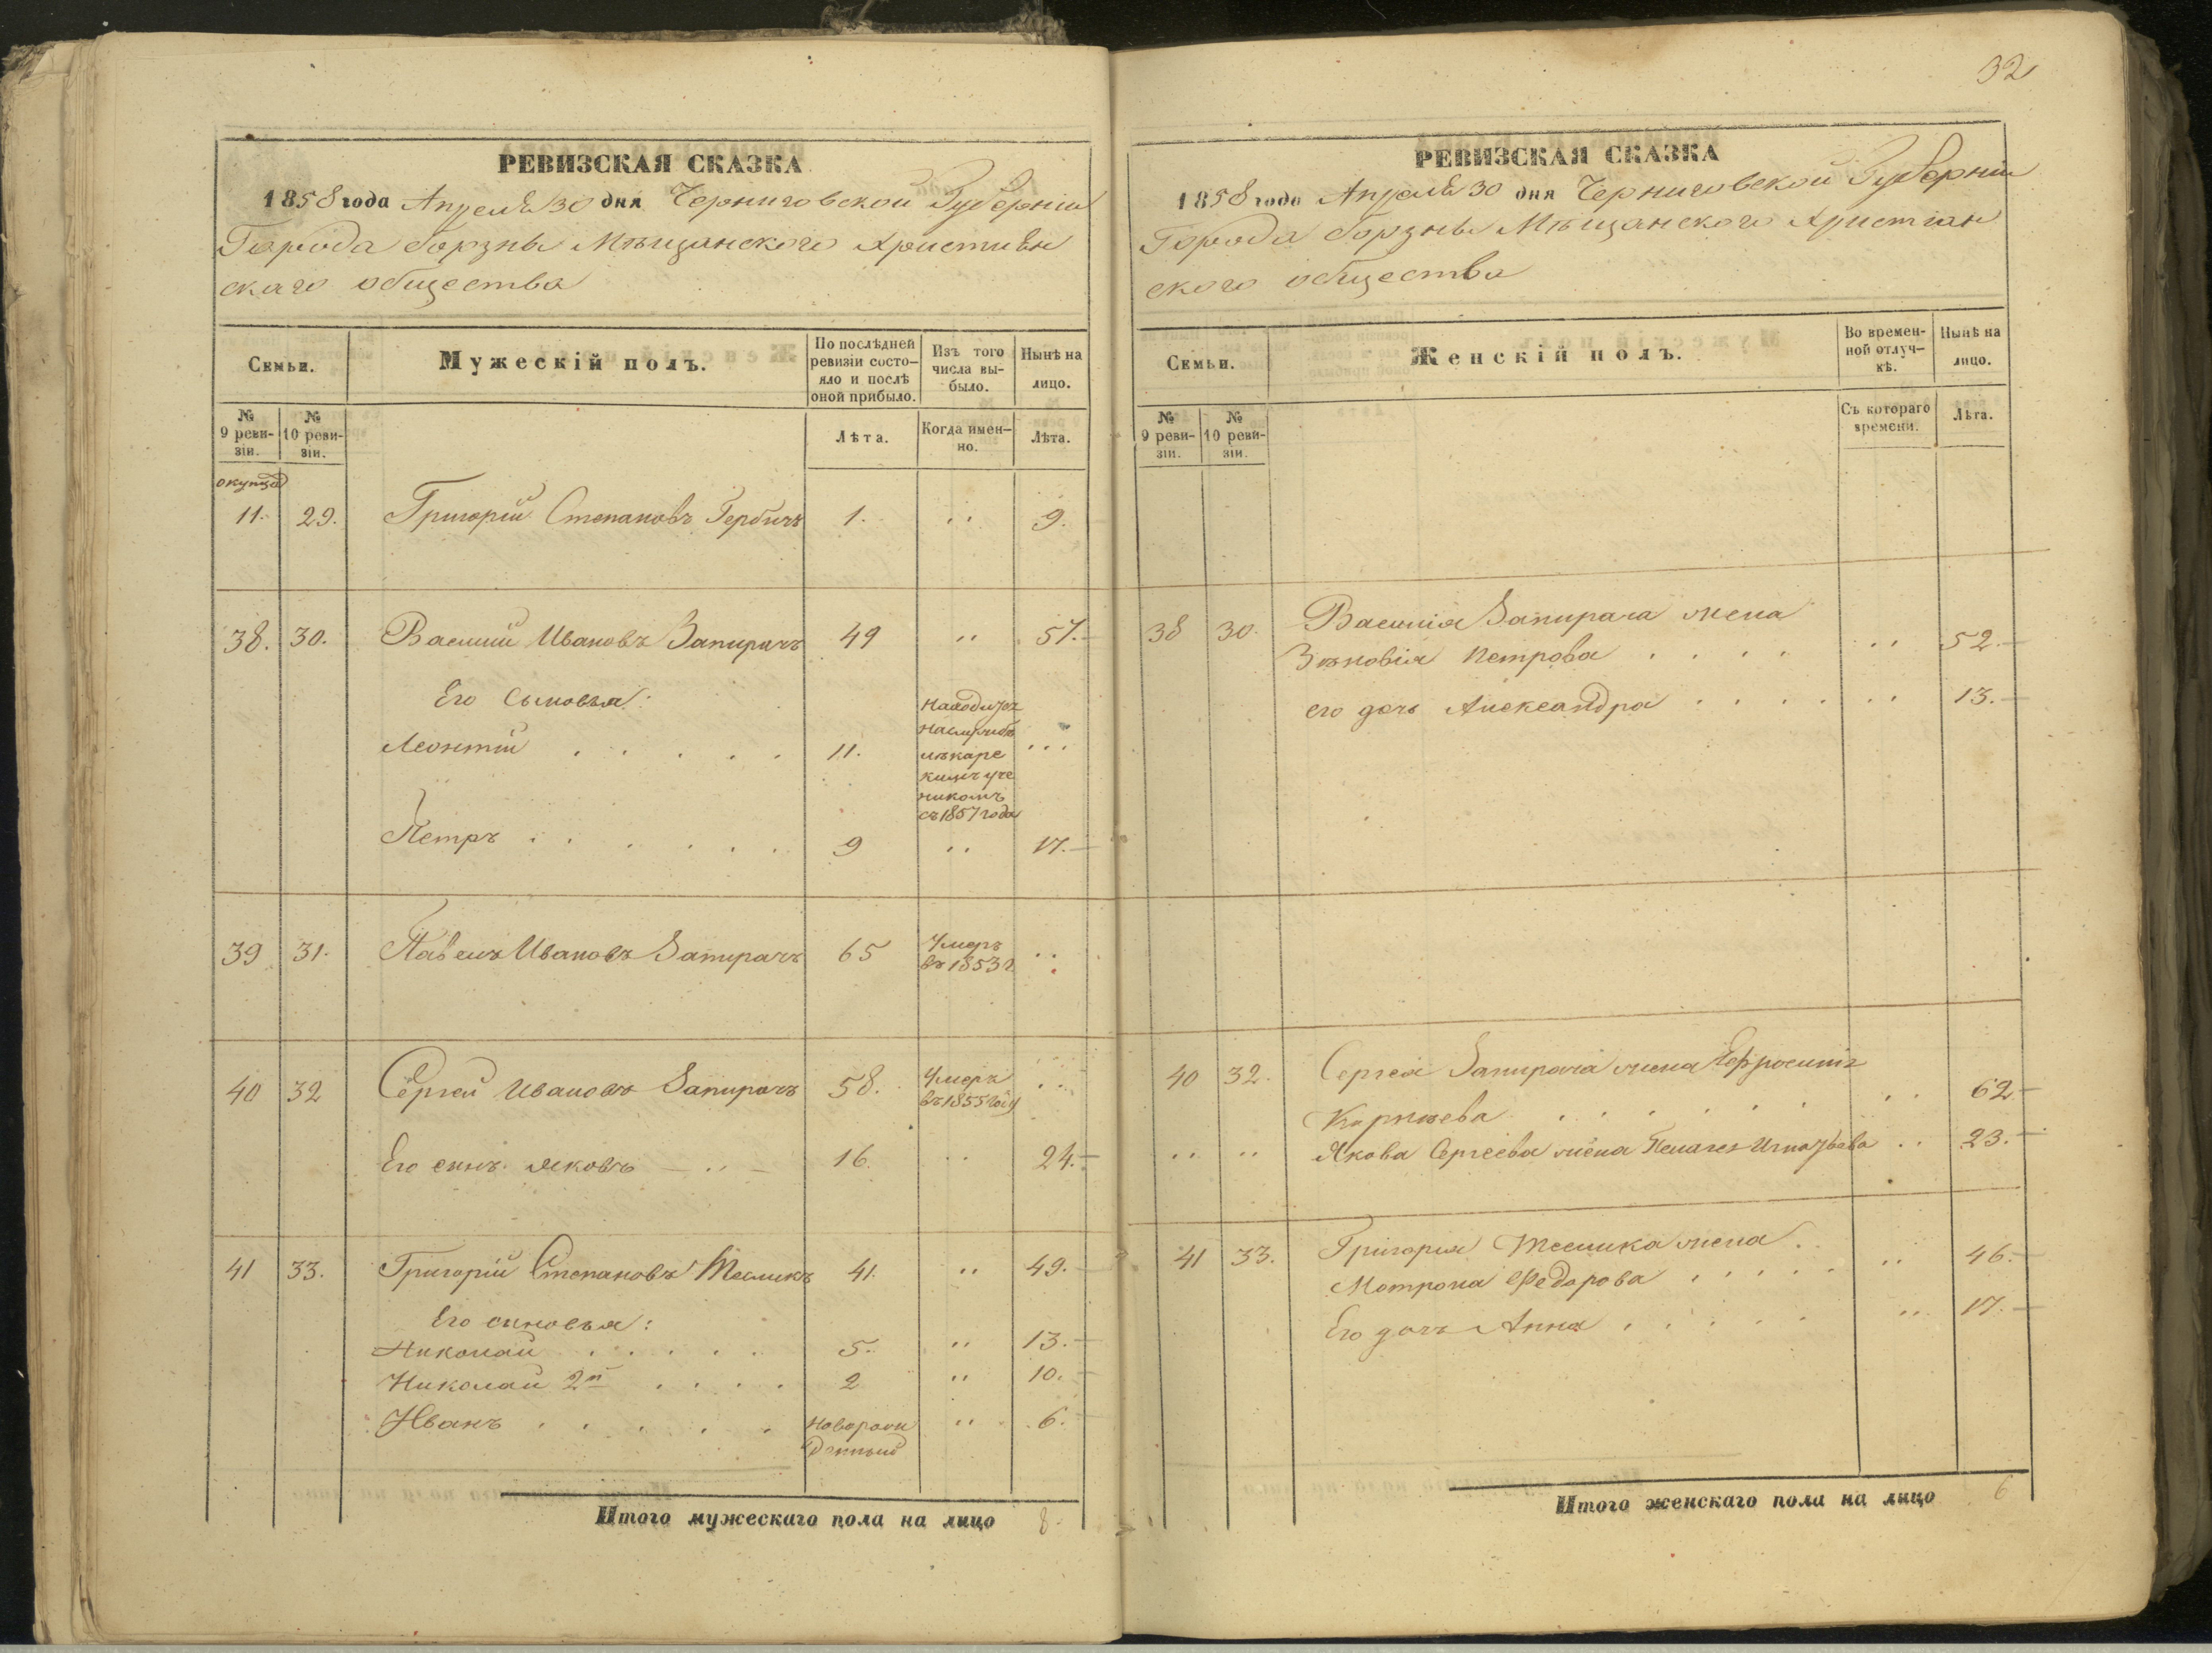 32
РЕВИЗСКАЯ СКАЗКА
1858 года Апреля 30 дня Черниговской Губерніи
Города Борзны Мѣщанского Христиан
скаго общества
Семьи.
Мужескій полъ.
По послѣдней ревизіи состо-яло и послѣ оной прибыло.
Изъ того числа вы-было.
Нынѣ на лицо.
№ 9 реви-зіи.
№ 10 реви-зіи.
Лѣта.
Когда имен-но.
Лѣта.
11. 29. Григорій Степановъ Гербичъ 1. 9.
38. 30. Василий Ивановъ Запирачъ 49 57.
Его Сыновья:
Леонтій 11.
съ 1857 года
Петръ 9 17.
39 31. Павелъ Ивановъ Запирачъ 65 Умеръ
въ 1853 г
40 32 Сергей Ивановъ Запирачъ 58. Умеръ
въ 1855 году
Его сынъ Яковъ 16. 24.
41 33. Григорій Степановъ Тесликъ 41. 49.
Его сыновья:
Николай 5. 13.
Николай 2й 2 10.
ИванъÍоворож 6.
денный
Итого мужескаго пола на лицо 8.
РЕВИЗСКАЯ СКАЗКА
1858 года Апреля 30 дня Черниговской Губерніи
Города Борзны Мѣщанского Христіан
ского общества
Семьи.
Женскій полъ.
Во времен-ной отлуч-кѣ.
Нынѣ на лицо.
№ 9 реви-зіи.
№ 10 реви-зіи.
Съ котораго времени.
Лѣта.
38 30. Василія Запирача жена
Зѣновія Петрова 52.
его дочь Александра 13.
40 32. Сергея Запирача жена Ефросинія
62
Якова Сергеева жена Пелагея Игнатьева 23.
41 33. Григорія Теслика жена
Мотрона Федорова 46.
Его дочь Анна 17.
Итого женскаго пола на лицо 6